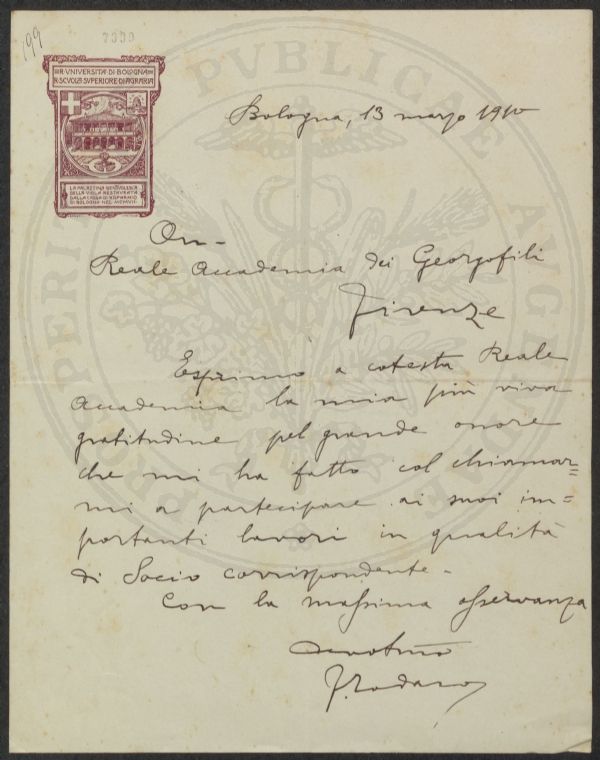 199
7390
R·UNIVERSITÀ·DI·BOLOGNA
R·SCVOLA·SUPERIORE·DI·AGRARIA
LA PALAZZINA BENTIVOLESCA
DELLA VIOLA RESTAURATA
DALLA CASSA DI RISPARMIO
DI BOLOGNA NEL MCMVII
PROSPERITATI PVBLICAE AVGENDAE
Bologna, 13 marzo 1910
On-
Reale Accademia dei Georgofili
Firenze
Esprimo a cotesta Reale
Accademia la mia più viva
gratitudine pel grande onore
che mi ha fatto col chiamar=
mi a partecipare ai suoi im=
portanti lavori in qualità
di Socio corrispondente-
Con la massima osservanza
devotmo